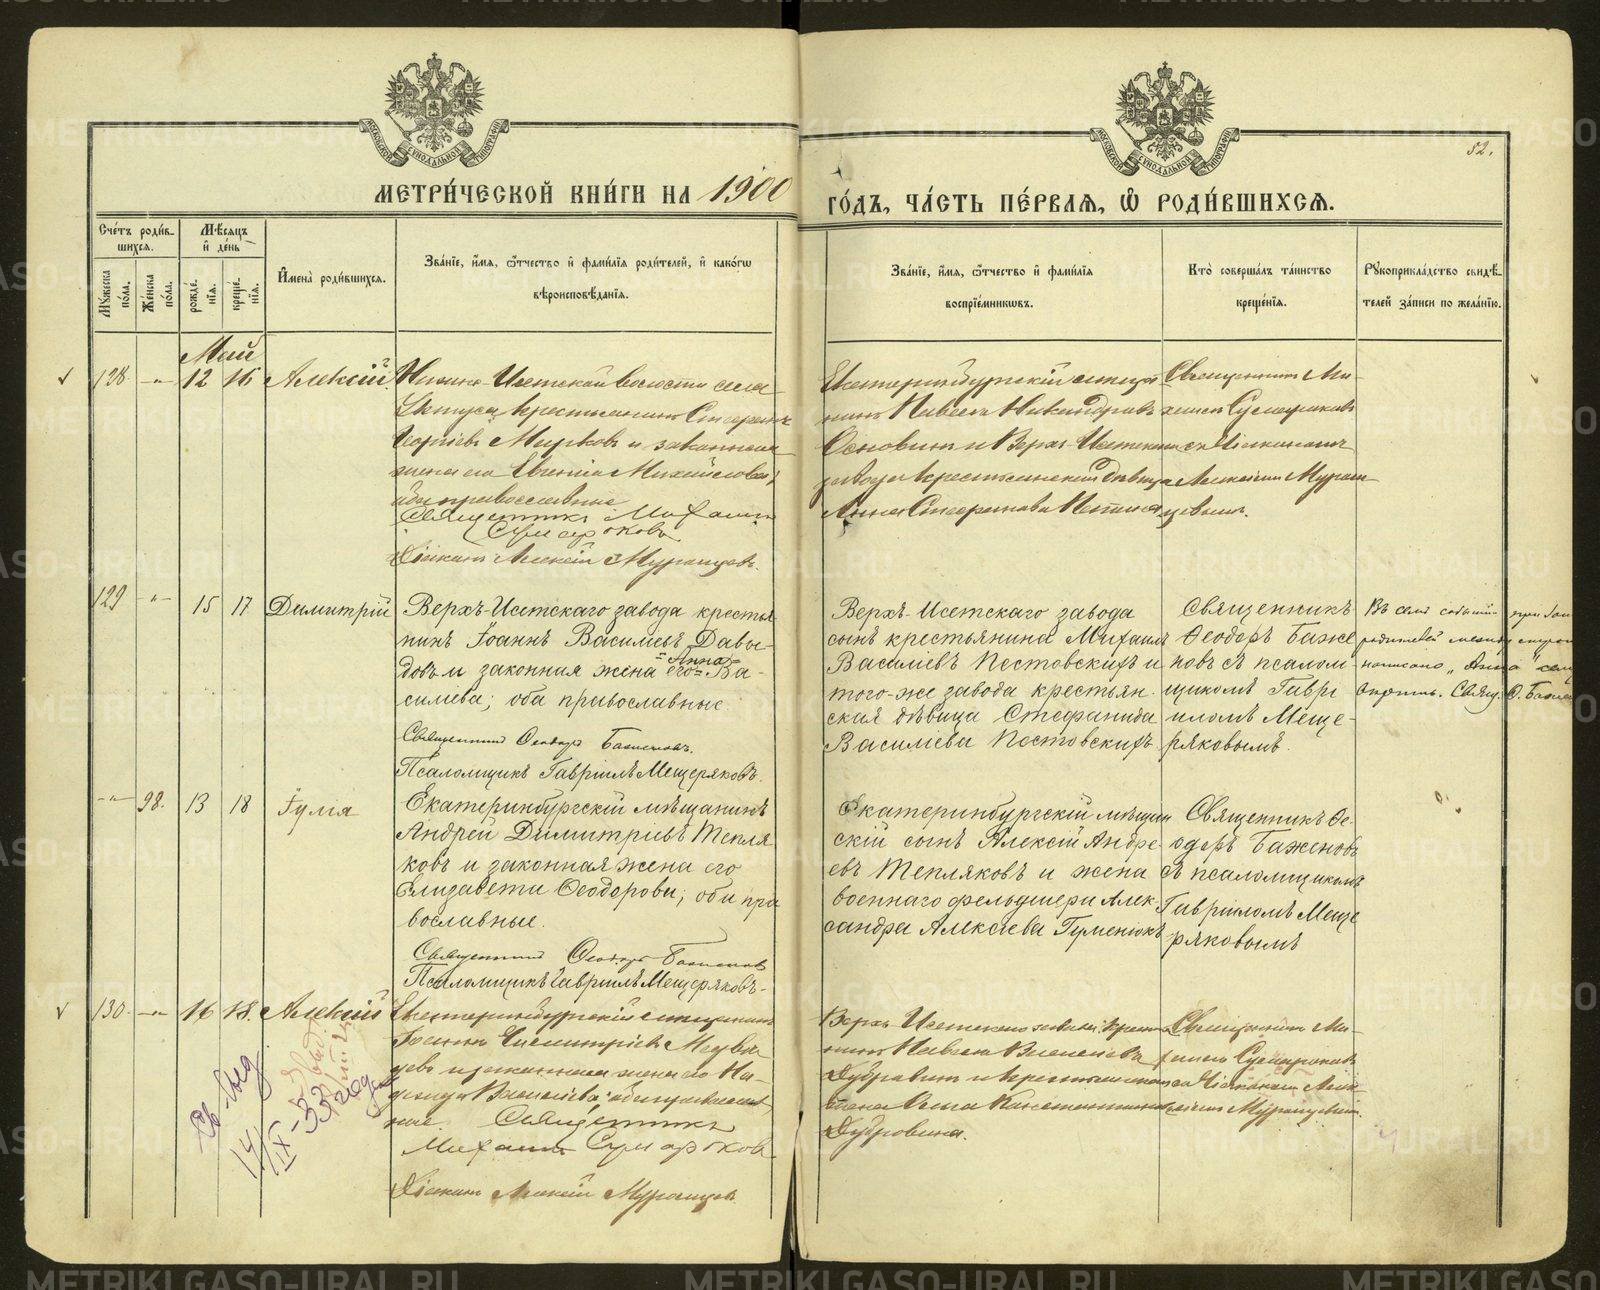 МЕТРИ́ЧЕСКОЙ КНИ́ГИ НА 1900 ГО́ДЪ, ЧА́СТЬ ПЕ́РВАЯ, Ѡ РОДИ́ВШИХСЯ.
52.
МОСКОВСКОЙ СѴНОДАЛЬНОЙ ТИПОГРАФІИ
МОСКОВСКОЙ СѴНОДАЛЬНОЙ ТИПОГРАФІИ
Сче́тъ роди́вшихся.
Мꙋ́жеска по́ла.
Же́нска по́ла.
Мѣ́сяцъ и де́нь
рожде́нїя.
креще́нїя.
И҆мена̀ роди́вшихся.
Зва́нїе, и҆́мя, ѻ҆́тчество и҆ фами́лїя роди́телей, и҆ како́гѡ
вѣроисповѣ́данїя.
Зва́нїе, и҆́мя, ѻ҆́тчество и҆ фами́лїя
воспрїе́мникѡвъ.
Кто̀ соверша́лъ та́инство
креще́нїя.
Рꙋкоприкла́дство свидѣ́-
телей за́писи по жела́нїю.
Май
128 -"- 12 16 Алексій
Нижне-Исетской волости села
крестьянинъ
Георгіевъ Мирковъ и законная
жена его Евгенія Михайлова;
оба православные
Священникъ Михаилъ
Сумароковъ
Діаконъ Алексій Мурашовъ.
Екатеринбургскій мѣща-
нинъ Павелъ Никандровъ
и Верхъ-Исетскаго
завода крестьянская дѣвица
Анна
Священникъ Ми-
хаилъ Сумароковъ
съ діакономъ
Алексіемъ
129 -"- 15 17 Димитрій
Верхъ-Исетскаго завода крестья
нинъ Іоаннъ Василіевъ Давы-
довъ и законная жена его Анна Ва-
силіева; оба православные
Священникъ Ѳеодоръ Баженовъ.
Псаломщикъ Гавріилъ Мещеряковъ.
Верхъ-Исетскаго завода
сынъ крестьянина Михаилъ
Василіевъ Постовскихъ и
того-же завода крестьян-
ская дѣвица Стефанида
Василіева Постовскихъ
Священникъ
Ѳеодоръ Баже
новъ съ псалом-
щикомъ Гаврі
иломъ Меще-
ряковымъ.
Въ семъ событіи при
родителей между строк
написано "Анна"
Свящ. Ѳ. Бажен
-"- 98. 13 18 Іулія
Екатеринбургскій мѣщанинъ
Андрей Димитріевъ Тепля
ковъ и законная жена его
Елизавета Ѳеодорова; оба пра
вославные.
Священникъ Ѳеодоръ Баженовъ
Псаломщикъ Гавріилъ Мещеряковъ.
Екатеринбургскій мѣщан
скій сынъ Алексій Андре
евъ Тепляковъ и жена
военнаго фельдшера Алек-
сандра Алексіева Гуменюкъ
Священникъ Ѳе-
одоръ Баженовъ
съ псаломщикомъ
Гавріиломъ Меще
ряковымъ
130 -"- 16 18. Алексій
Екатеринбургскій мѣщанинъ
Іоаннъ Димитріевъ Медвѣ
девъ и законная жена его На-
дежда Василіева; оба православ
ные. Священникъ
Михаилъ Сумароковъ
Діаконъ Алексій Мурашовъ
Верхъ-Исетскаго завода крестья
нинъ Павелъ Василіевъ
Дубровинъ и крестьянская
Ольга Константинова
Дубровина.
Священникъ Ми-
хаилъ Сумароковъ
съ діакономъ Алек
сіемъ
14/IX-33
METRIKI.GASO-URAL.RU